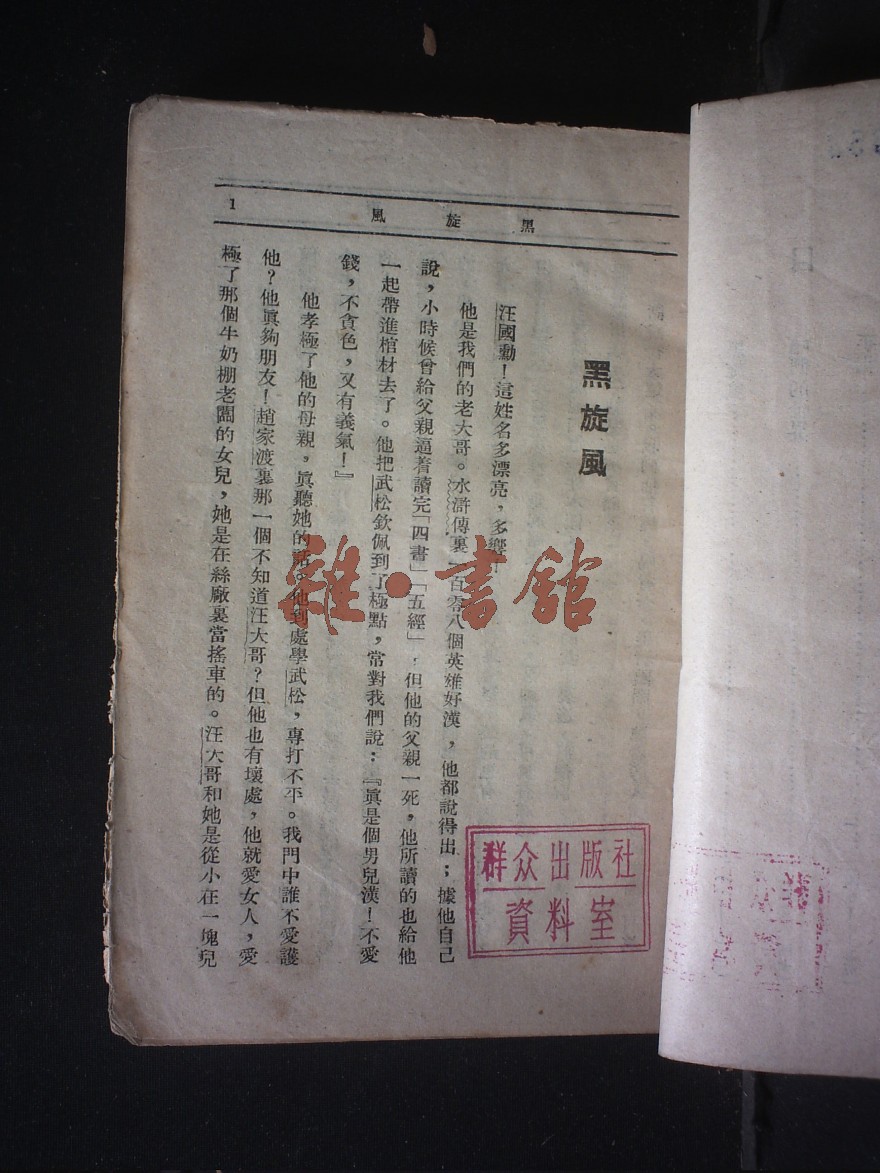 黑旋風
1
黑旋風
汪國勳！這姓名多漂亮，多響！
他是我們的老大哥。水滸傳裏一百零八個英雄好漢，他都說得出；據他自己
說，小時候曾給父親逼着讀完「四書」「五經」，但他的父親一死，他所讀的也給他
一起帶進棺材去了。他把武松欽佩到了極點，常對我們說：『眞是個男兒漢！不愛
錢，不貪色，又有義氣！』
他孝極了他的母親，眞聽她的話。他到處學武松，專打不平。我門中誰不愛護
他？他眞夠朋友！趙家渡裏那一個不知道汪大哥？但他也有壞處，他就愛女人，愛
極了那個牛奶棚老闆的女兒，她是在絲廠裏當搖車的。汪大哥和她是從小在一塊兒
雜·書館
群众出版社
資料室